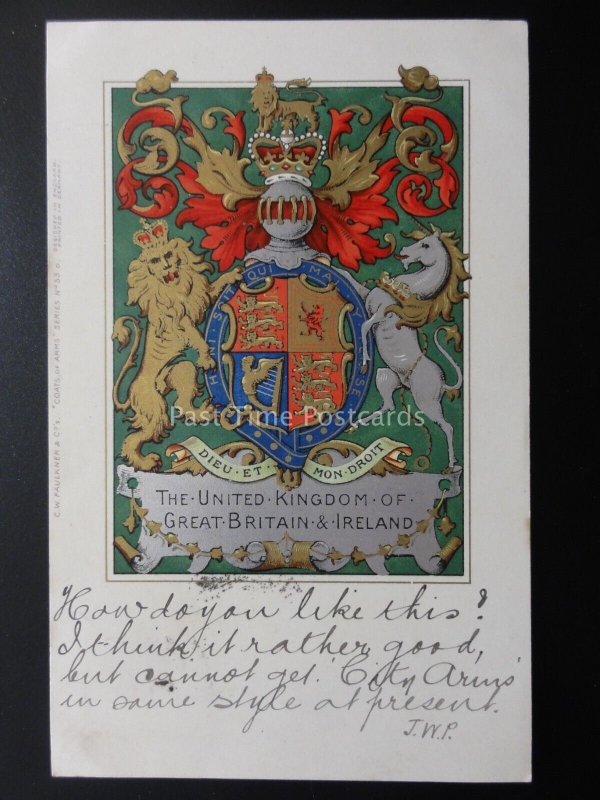 HONI · SOIT · QUI · MAL · Y · PENSE
DIEU · ET · MON · DROIT
THE · UNITED · KINGDOM · OF ·
GREAT · BRITAIN · & · IRELAND
C.W. FAULKNER & Co's. "COATS OF ARMS" SERIES No 530.
Past Time Postcards
How do you like this?
I think it rather good,
but cannot get 'City Arms'
in same style at present.
J.W.P.